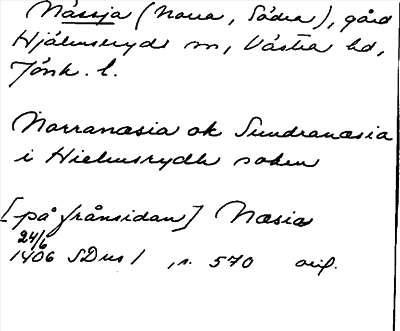 Nässja (Norra, Södra), gård
Hjälmseryds sn, Västra hd,
Jönk. l.
Norranæsia ok Sundranæsia
i Hielmsrydh sokn
[på frånsidan] Næsia
24/6
1406 SDns 1, s. 570 orig.